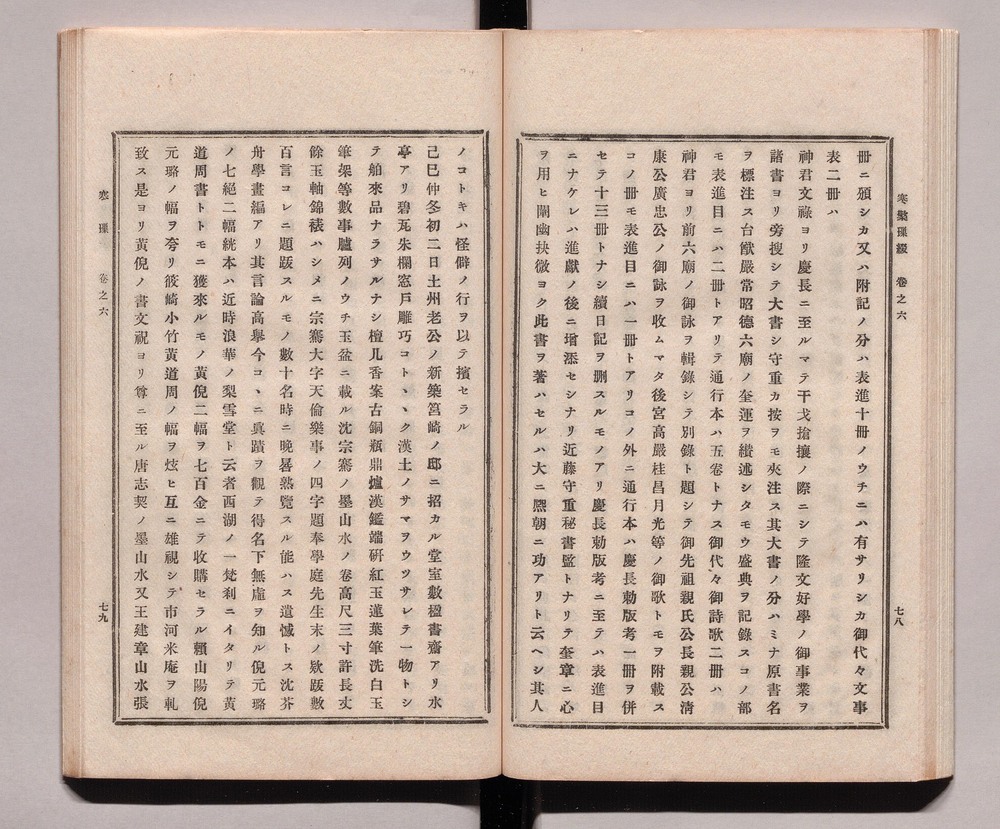 寒檠璅綴　卷之六
七八
冊ニ頒シカ又ハ附記ノ分ハ表進十冊ノウチニハ有サリシカ御代々文事
表二冊ハ
神君文祿ヨリ慶長ニ至ルマテ干戈搶攘ノ際ニシテ隆文好學ノ御事業ヲ
諸書ヨリ旁搜シテ大書シ守重カ按ヲモ夾注ス其大書ノ分ハミナ原書名
ヲ標注ス台猷嚴常昭德六廟ノ奎運ヲ纉述シタモウ盛典ヲ記錄スコノ部
モ表進目ニハ二冊トアリテ通行本ハ五卷トナス御代々御詩歌二冊ハ
神君ヨリ前六廟ノ御詠ヲ輯錄シテ別錄ト題シテ御先祖親氏公長親公淸
康公廣忠公ノ御詠ヲ收ムマタ後宮高嚴桂昌月光等ノ御歌トモヲ附載ス
コノ冊モ表進目ニハ一冊トアリコノ外ニ通行本ハ慶長勅版考一冊ヲ併
セテ十三冊トナシ續日記ヲ删スルモノアリ慶長勅版考ニ至テハ表進目
ニナケレハ進獻ノ後ニ增添セシナリ近藤守重秘書監トナリテ奎章ニ心
ヲ用ヒ闡幽抉微ヨク此書ヲ著ハセルハ大ニ熈朝ニ功アリト云ヘシ其人
ノコトキハ怪僻ノ行ヲ以テ擯セラル
己巳仲冬初二日土州老公ノ新築筥崎ノ邸ニ招カル堂室數楹書齋アリ水
亭アリ碧瓦朱欄窓戶雕巧コト〱ク漢土ノサマヲウツサレテ一物トシ
テ舶來品ナラサルナシ檀几香案古銅瓶鼎爐漢鑑端硏紅玉蓮葉筆洗白玉
筆架等數事臚列ノウチ玉盆ニ載ル沈宗騫ノ墨山水ノ卷高尺三寸許長丈
餘玉軸錦裱ハシメニ宗騫大字天倫樂事ノ四字題奉學庭先生末ノ欵跋數
百言コレニ題跋スルモノ數十名時ニ晚晷熟覽スル能ハス遺憾トス沈芥
舟學畫編アリ其言論高擧今コヽニ眞蹟ヲ觀テ得名下無虛ヲ知ル倪元璐
ノ七絕二幅絖本ハ近時浪華ノ梨雪堂ト云者西湖ノ一梵刹ニイタリテ黃
道周書トトモニ獲來ルモノ黃倪二幅ヲ七百金ニテ收購セラル賴山陽倪
元璐ノ幅ヲ夸リ筱崎小竹黃道周ノ幅ヲ炫ヒ互ニ雄視シテ市河米庵ヲ軋
致ス是ヨリ黃倪ノ書文祝ヨリ尊ニ至ル唐志契ノ墨山水又王建章山水張
寒　璅　　卷之六
七九